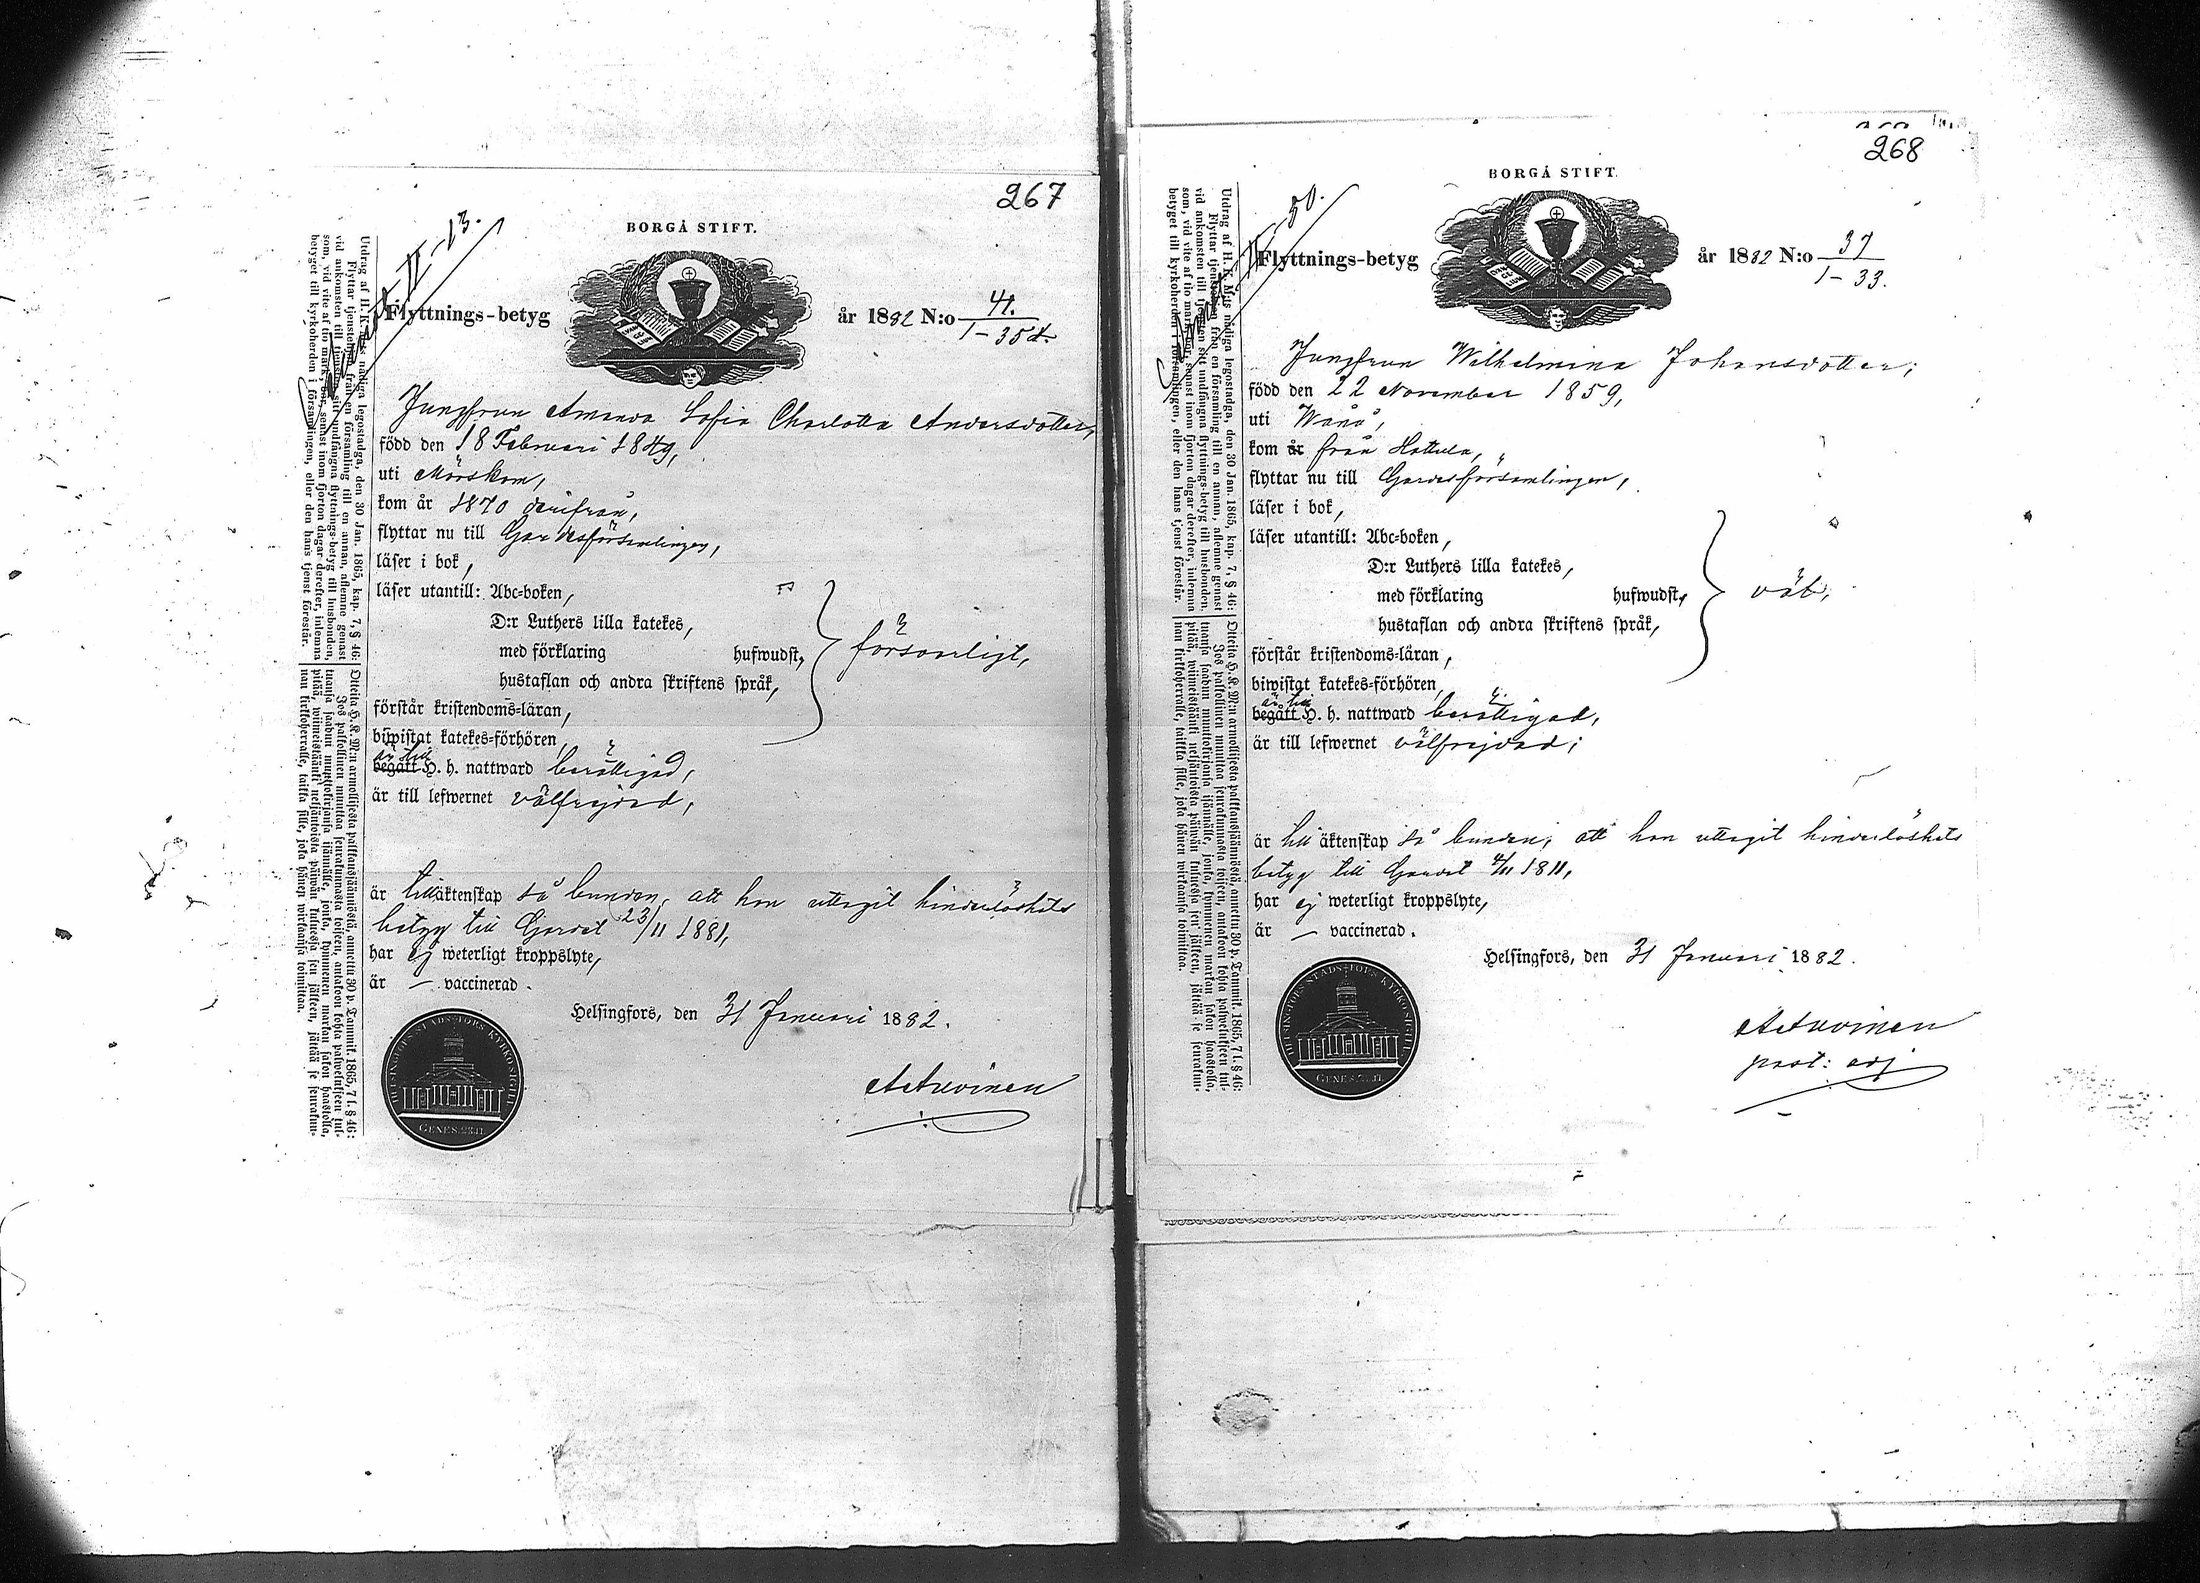 267
BORGÅ STIFT.
II-13.
Flyttnings-betyg år 1882 N:o 41.
1-35
Jungfrun Amanda Sofia Charlotta Andersdotter,
född den 18 Februari 1849,
uti Mörskom,
kom år 1870 därifrån,
flyttar nu till Gardesförsamlingen,
läser i bok,
läser utantill: Abc-boken,
D:r Luthers lilla katekes,
med förklaring hufwudst,
hustaflan och andra skriftens språk,
försvarligt,
förstår kristendoms-läran,
biwistat katekes-förhören,
är till
begått H. h. nattward berättigad,
är till lefwernet välfrejdad,
är till äktenskap så bunden, att hon uttagit hinderlöshets
betyg till Gardet 23/11 1881,
har ej weterligt kroppslyte,
är — vaccinerad.
Helsingfors, den 31 Januari 1882.
HELSINGFORS STADS FÖRS. KYRKOSIGILL
GENES. 28.17.
Utdrag af H. K. M:ts nådiga legostadga, den 30 Jan. 1865, kap. 7, § 46:
Flyttar tjenstehjon från en församling till en annan, aflemne genast
vid ankomsten till tjensten sitt undfångna flyttnings-betyg till husbonden,
som, vid vite af tio mark, bör, senast inom fjorton dagar derefter, inlemna
betyget till kyrkoherden i församlingen, eller den hans tjenst förestår.
268
BORGÅ STIFT.
50.
Flyttnings-betyg år 1882 N:o 37
1-33.
Jungfrun Wilhelmina Johansdotter;
född den 22 November 1859,
uti Wånå,
kom år från Hattula,
flyttar nu till Gardesförsamlingen,
läser i bok,
läser utantill: Abc-boken,
D:r Luthers lilla katekes,
med förklaring hufwudst,
hustaflan och andra skriftens språk,
väl,
förstår kristendoms-läran,
biwistat katekes-förhören,
är till
begått H. h. nattward berättigad,
är till lefwernet välfrejdad;
är till äktenskap så bunden, att hon uttagit hinderlöshets
betyg till Gardet
har ej weterligt kroppslyte,
är — vaccinerad.
Helsingfors, den 31 Januari 1882.
past: adj
HELSINGFORS STADS FÖRS. KYRKOSIGILL
GENES. 28.17.
Utdrag af H. K. M:ts nådiga legostadga, den 30 Jan. 1865, kap. 7, § 46:
Flyttar tjenstehjon från en församling till en annan, aflemne genast
vid ankomsten till tjensten sitt undfångna flyttnings-betyg till husbonden,
som, vid vite af tio mark, bör, senast inom fjorton dagar derefter, inlemna
betyget till kyrkoherden i församlingen, eller den hans tjenst förestår.